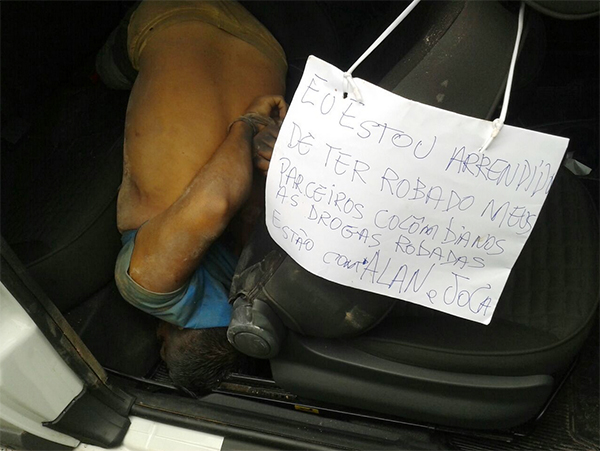 EU ESTOU ARREPIDIDO
DE TER ROBADO MEUS
PARCEIROS COCOMDIANOS
AS DROGAS ROBADAS
ESTÃO COM ALAN e JOCA